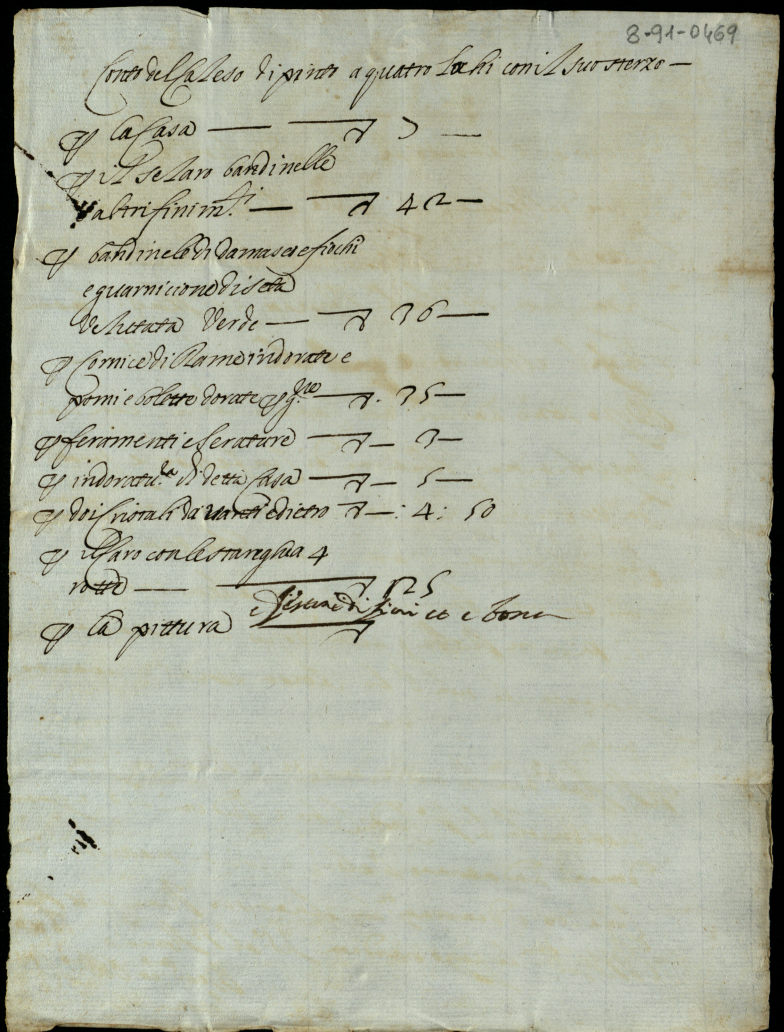 8-91-0469
Conto del Caleso dipinto a quatro lochi con il suo sterzo —
P la Casa — —
P il Selaro bandinelle
altri finim.ti — — 42 —
P bandinele di damasco e fiochi
e guarnicione di seta
Velutata Verde — — 36 —
P Cornice di Rame indorate e
pomi e bolette dorate P — 35 —
P feramenti e serature — — 3 —
P indoratu.ra di detta Casa — — 5 —
P doi Cristali da vanti e dietro — : 4 : 50
P il Caro con le 4
rotte — — 125
P la pittura